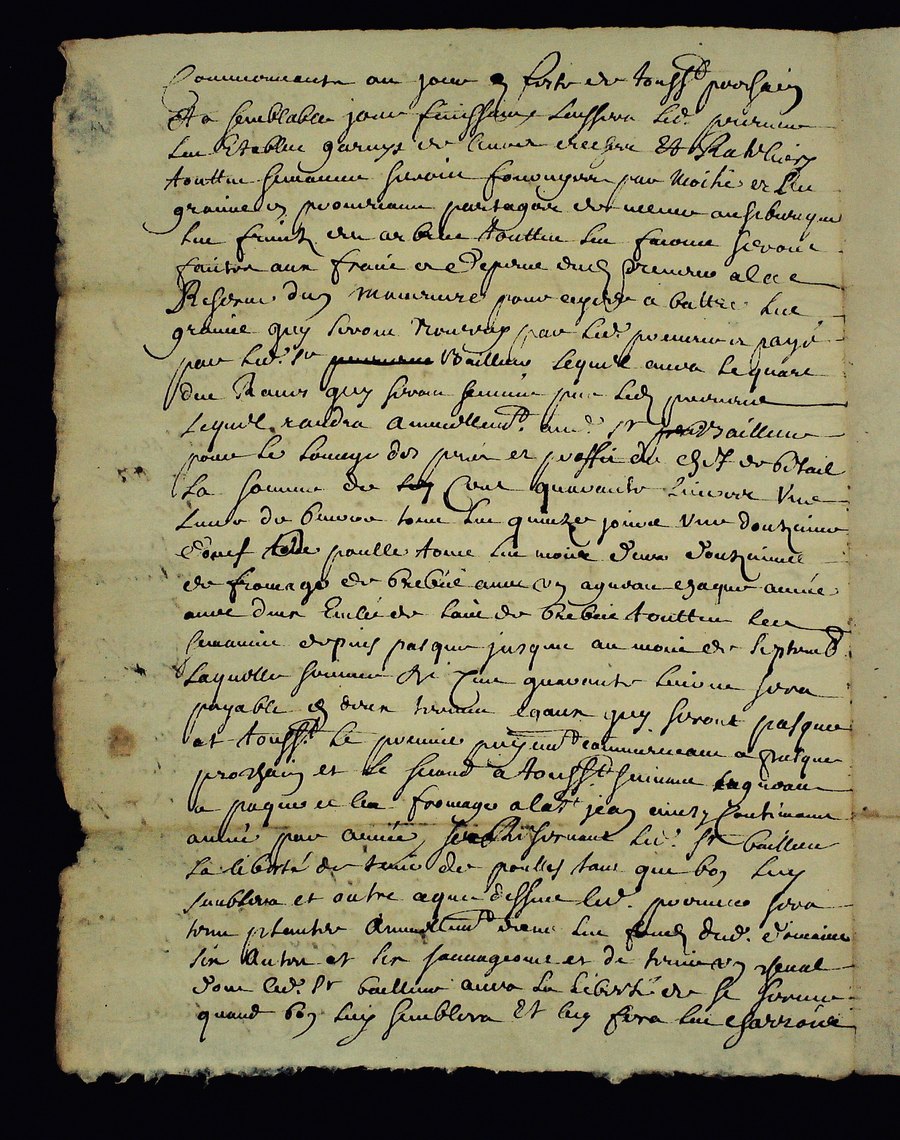 Commensante au jour & feste de touss^ts^ prochain
Et a semblable jour finissant laissera led. preneur
Les Estables garnys de leurs creches Et Rateliers
touttes semances seront fournyes par moitié et les
graines en provenant partagés de mesme ainsi que
Les fruits des arbres touttes les façons seront
faites aux frais et depens dud preneur a la
Reserve dun pour ayder a battre Les
graine quy seront par led. preneur et payé
par led. Sr preneur Bailleur Lequel aura le quart
des Raves quy seront semées par led preneur
Lequel randra annuellem^t^. aud. Sr Bailleur
pour le Louage des prés et proffit de de bétail
La somme de Cent quarante Livres Une
Livre de beurre tous les quinze jours Une douzaine
d'oeuf poulle tous les mois deux douzaines
de fromage de brebis avec un agneau chaque année
avec dun de lait de brebis touttes les
semaines depuis pasques jusques au mois de septemb.
Laquelle somme de Cent quarante Livres sera
payable en deux termes egaux quy seront pasques
et touss^t^. Le premier payem^t^ commenceant a pasques
prochain et le second a touss^t^ suivant agneau
a paques et les fromages a la S^t^ jean Continuant
année par année Reservant led. Sr bailleur
La liberté de tenir des poulles tant que bon Luy
semblera et outre a que dessus led. preneur sera
tenu planter Annuellem^t^ dans les fonds dud. domaine
six Autres et six sauvageons et de tenir un cheval
dont led. Sr bailleur aura La Liberté de se servir
quand bon Luy semblera Et luy fera les charrois